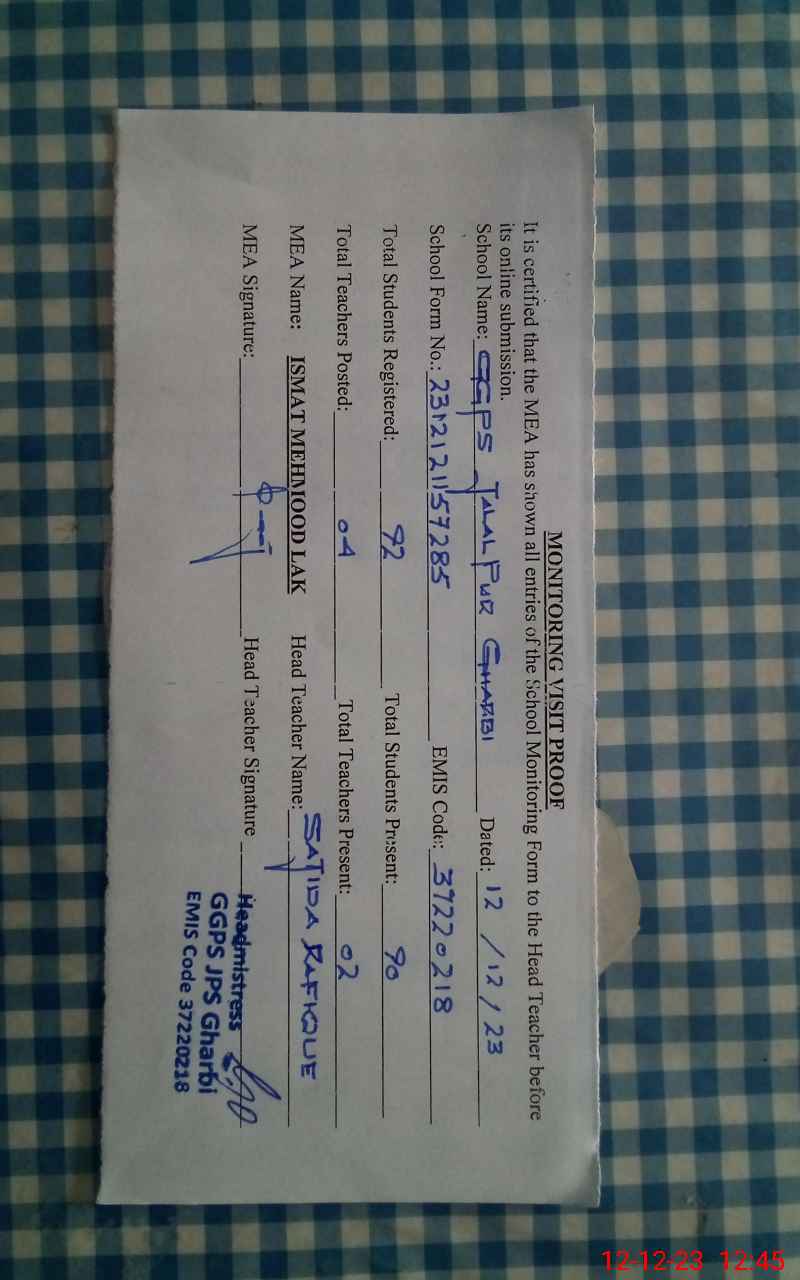 MONITORING VISIT PROOF
It is certified that the MEA has shown all entries of the School Monitoring Form to the Head Teacher before
its online submission.
School Name: GGPS JALAL PUR GHARBI Dated: 12/12/23
School Form No.: 2312121157285 EMIS Code: 37220218
Total Students Registered: 92 Total Students Present: 90
Total Teachers Posted: 04 Total Teachers Present: 02
MEA Name: ISMAT MEHMOOD LAK Head Teacher Name: SAJIDA RAFIQUE
MEA Signature: Head Teacher Signature
Headmistress
GGPS JPS Gharbi
EMIS Code 37220218
12-12-23 12:45